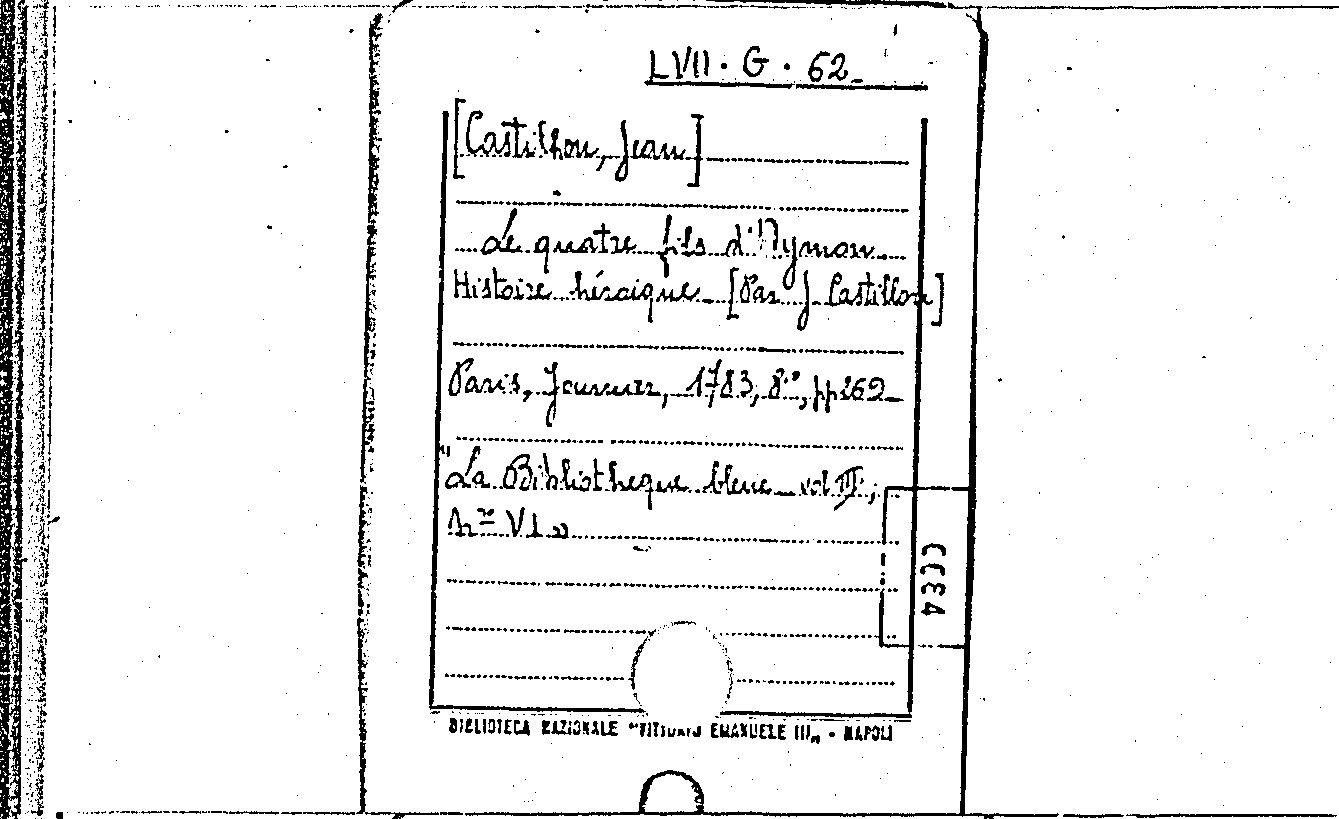 LVII · G · 62
[Castilhon, Jean]
Le quatre fils d'Aymon
Histoire héroique - [Par J. Castillon]
Paris, Fournier, 1783, 8°, pp 262
"La Bibliotheque bleue - vol III;
n° VI"
BIBLIOTECA NAZIONALE "VITTORIO EMANUELE III" - NAPOLI